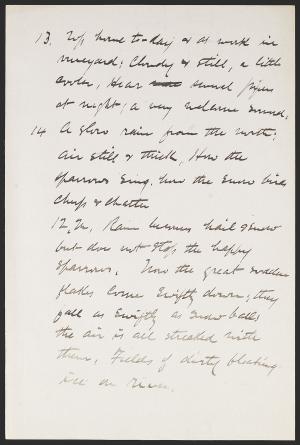 13. Up home to-day & at work in
vineyard; Cloudy & still, a little
cooler, Hear several
at night; a very welcome sound;
14 A slow rain from the north;
air still & thick, How the
sparrows sing, how the snow birds
chirp & chatter
12, M, Rain becomes hail & snow
but does not stop the happy
sparrows. Now the great sodden
flakes come swiftly down; they
fall as swiftly as snow balls
the air is all streaked with
them, Fields of dirty floating
ice on river.